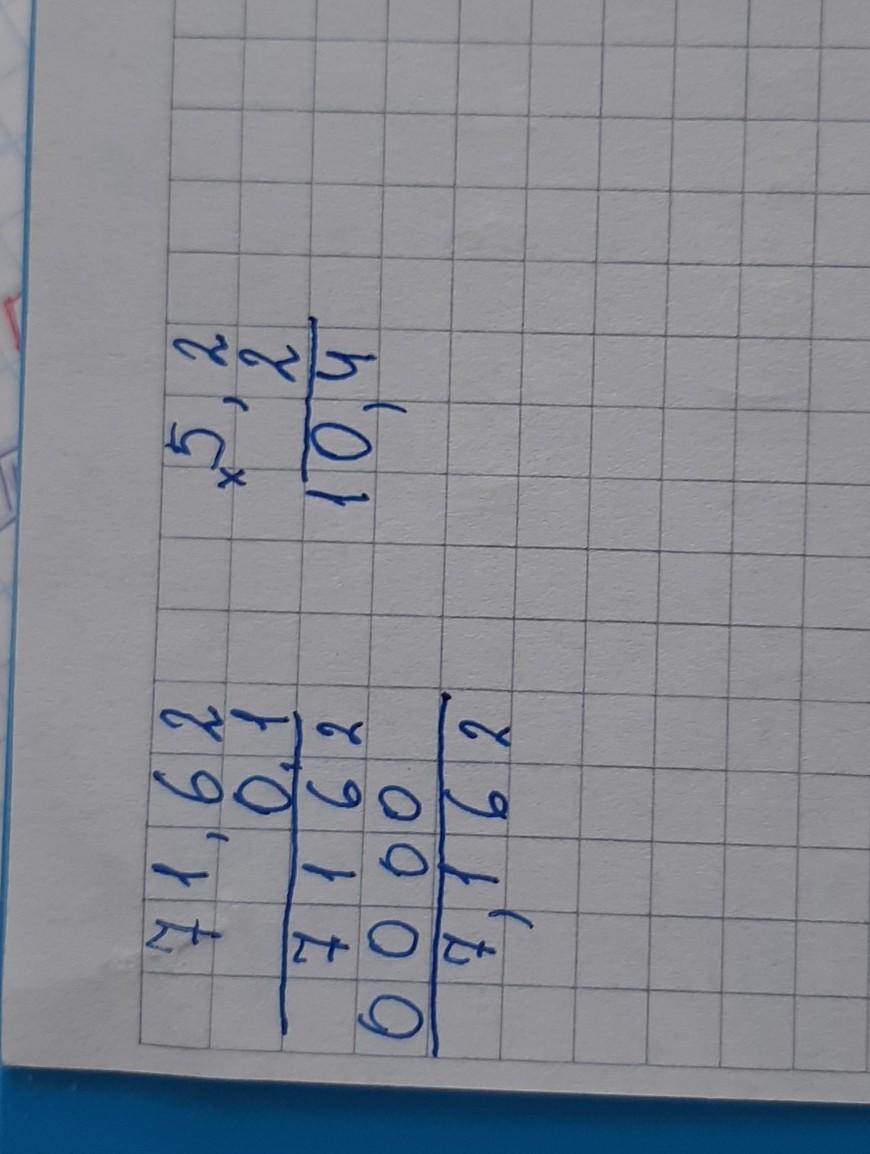 71,62
0,1
7162
0000
7,162
× 5,2
2
10,4